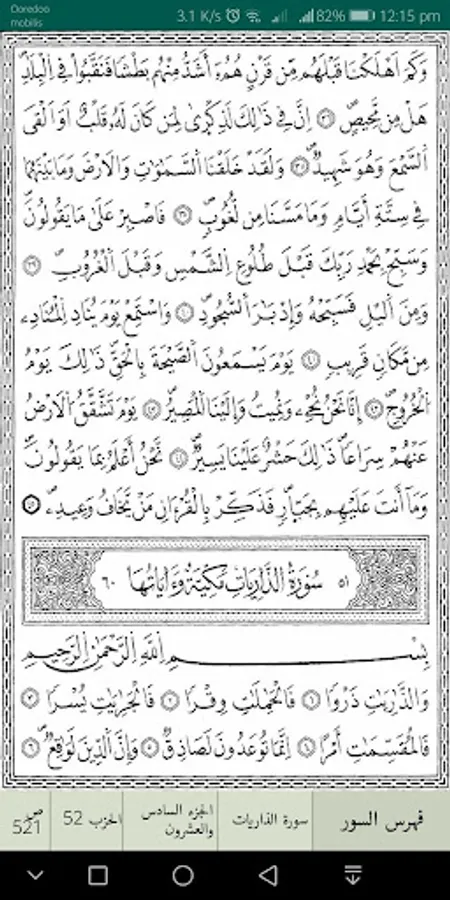 Ooredoo
mobilis
3.1 K/s 82% 12:15 pm
وَكَمَ اَهْلَكْنَا قَبْلَهُم مِّن قَرْنٍ هُمُۥٓ أَشَدُّ مِنْهُم بَطْشًا فَنَقَّبُوا۟ فِي اِلْبِلَٰدِ
هَلْ مِن مَّحِيصٍ ۝ اِنَّ فِي ذَٰلِكَ لَذِكْر۪يٰ لِمَن كَانَ لَهُۥ قَلْبٌ اَوَ اَلْقَى
اَ۬لسَّمْعَ وَهُوَ شَهِيدٌ ۝ وَلَقَدْ خَلَقْنَا اَ۬لسَّمَٰوَٰتِ وَالَارْضَ وَمَا بَيْنَهُمَا
فِي سِتَّةِ أَيَّامٍ وَمَا مَسَّنَا مِن لُّغُوبٍ ۝ فَاصْبِرْ عَلَىٰ مَا يَقُولُونَ
وَسَبِّحْ بِحَمْدِ رَبِّكَ قَبْلَ طُلُوعِ اِ۬لشَّمْسِ وَقَبْلَ اَ۬لْغُرُوبِ ۝
وَمِنَ اَ۬ليْلِ فَسَبِّحْهُ وَإِدْبَٰرَ اَ۬لسُّجُودِ ۝ وَاسْتَمِعْ يَوْمَ يُنَادِ اِ۬لْمُنَادِۦ
مِن مَّكَانٍ قَرِيبٍ ۝ يَوْمَ يَسْمَعُونَ اَ۬لصَّيْحَةَ بِالْحَقِّ ذَٰلِكَ يَوْمُ
اُ۬لْخُرُوجِ ۝ إِنَّا نَحْنُ نُحْيِۦ وَنُمِيتُ وَإِلَيْنَا اَ۬لْمَصِيرُ ۝ يَوْمَ تَشَّقَّقُ اُ۬لَارْضُ
عَنْهُمْ سِرَاعاً ذَٰلِكَ حَشْرٌ عَلَيْنَا يَسِيرٌ ۝ نَّحْنُ أَعْلَمُ بِمَا يَقُولُونَ
وَمَا أَنتَ عَلَيْهِم بِجَبّ۪ارٍ فَذَكِّرْ بِالْقُرْءَانِ مَنْ يَّخَافُ وَعِيدِۦ ۝
٥١ سُورَةُ الذَّارِيَاتِ مَكِّيَّةٌ وَءَايَاتُهَا ٦٠
بِسْمِ اللَّهِ الرَّحْمَٰنِ الرَّحِيمِ
وَالذَّٰرِيَٰتِ ذَرْواً ۝ فَالْحَٰمِلَٰتِ وِقْراً ۝ فَالْجَٰرِيَٰتِ يُسْراً ۝
فَالْمُقَسِّمَٰتِ أَمْراً ۝ اِنَّمَا تُوعَدُونَ لَصَادِقٌ ۝ وَإِنَّ اَ۬لدِّينَ لَوَٰقِعٌ ۝
فهرس السور
سورة الذاريات
الجزء السادس والعشرون
الحزب 52
ص 521